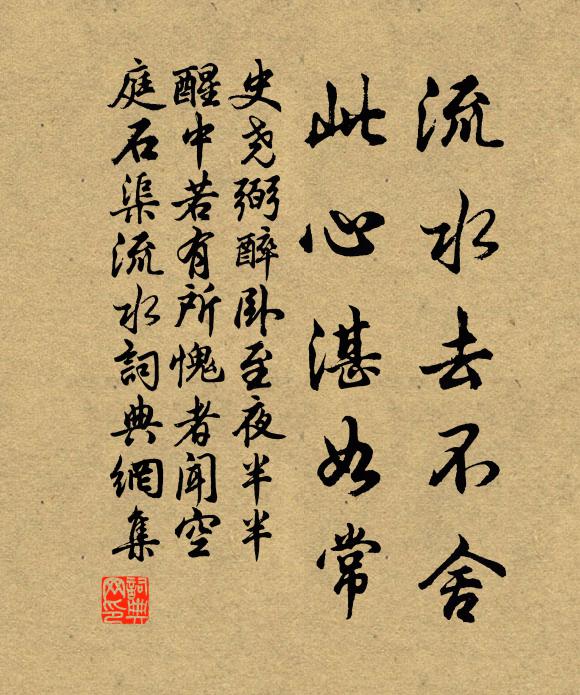 流水去不舍
此心湛如常
史尧弼醉卧至夜半半
醒中若有所愧者闻空
庭石渠流水詞典網集
詞典
网印